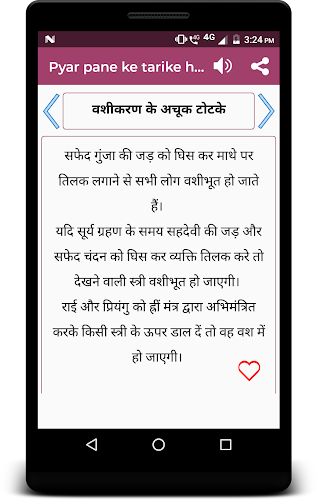 4G 4G 3:24 PM
Pyar pane ke tarike h...
वशीकरण के अचूक टोटके
सफेद गुंजा की जड़ को घिस कर माथे पर
तिलक लगाने से सभी लोग वशीभूत हो जाते
हैं।
यदि सूर्य ग्रहण के समय सहदेवी की जड़ और
सफेद चंदन को घिस कर व्यक्ति तिलक करे तो
देखने वाली स्त्री वशीभूत हो जाएगी।
राई और प्रियंगु को ह्रीं मंत्र द्वारा अभिमंत्रित
करके किसी स्त्री के ऊपर डाल दें तो वह वश में
हो जाएगी।